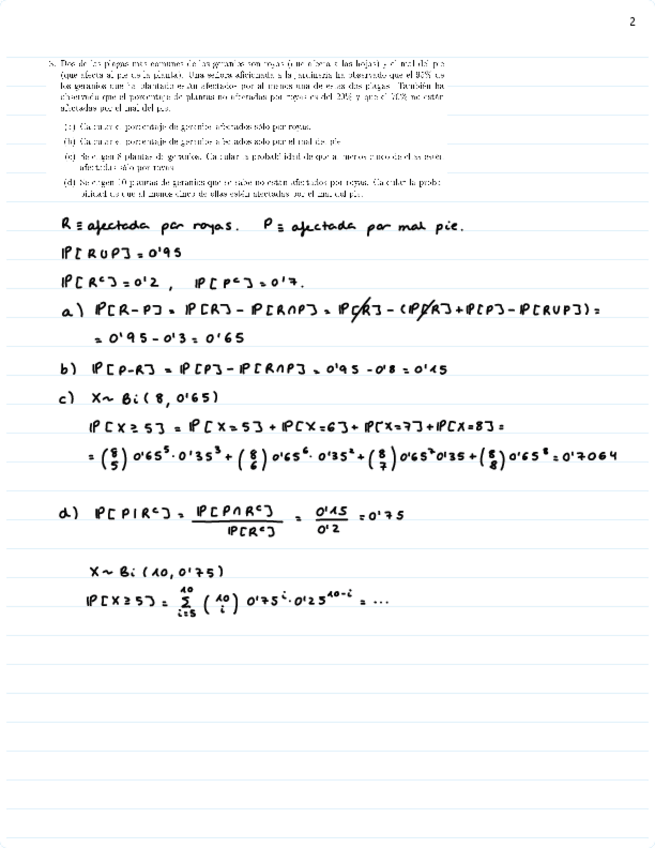 2
5. Dos de las plagas más comunes de los geranios son royas (que afecta a las hojas) y el mal del pie
(que afecta al pie de la planta). Una señora aficionada a la jardinería ha observado que el 95% de
los geranios que ha plantado están afectados por al menos una de estas dos plagas. También ha
observado que el porcentaje de plantas no afectadas por royas es del 20% y que el 70% no están
afectadas por el mal del pie.
(a) Calcular el porcentaje de geranios afectados sólo por royas.
(b) Calcular el porcentaje de geranios afectados sólo por el mal del pie.
(c) Se eligen 8 plantas de geranios. Calcular la probabilidad de que al menos cinco de ellas estén
afectadas sólo por royas.
(d) Se eligen 10 plantas de geranios que se sabe no están afectados por royas. Calcular la proba-
bilidad de que al menos cinco de ellas estén afectadas por el mal del pie.
R ≡ afectada por royas. P ≡ afectada por mal pie.
IP[RUP] = 0'95
IP[Rᶜ] = 0'2 , IP[Pᶜ] = 0'7.
a) IP[R-P] = IP[R] - IP[R∩P] = IP[R] - (IP[R] + IP[P] - IP[RUP]) =
= 0'95 - 0'3 = 0'65
b) IP[P-R] = IP[P] - IP[R∩P] = 0'95 - 0'8 = 0'15
c) X ~ Bi(8, 0'65)
IP[X ≥ 5] = IP[X = 5] + IP[X = 6] + IP[X = 7] + IP[X = 8] =
= (8 5) 0'65⁵ · 0'35³ + (8 6) 0'65⁶ · 0'35² + (8 7) 0'65⁷ 0'35 + (8 8) 0'65⁸ = 0'7064
d) IP[P|Rᶜ] = IP[P∩Rᶜ] / IP[Rᶜ] = 0'15 / 0'2 = 0'75
X ~ Bi(10, 0'75)
IP[X ≥ 5] = Σ i=5 10 (10 i) 0'75ⁱ · 0'25¹⁰⁻ⁱ = ...